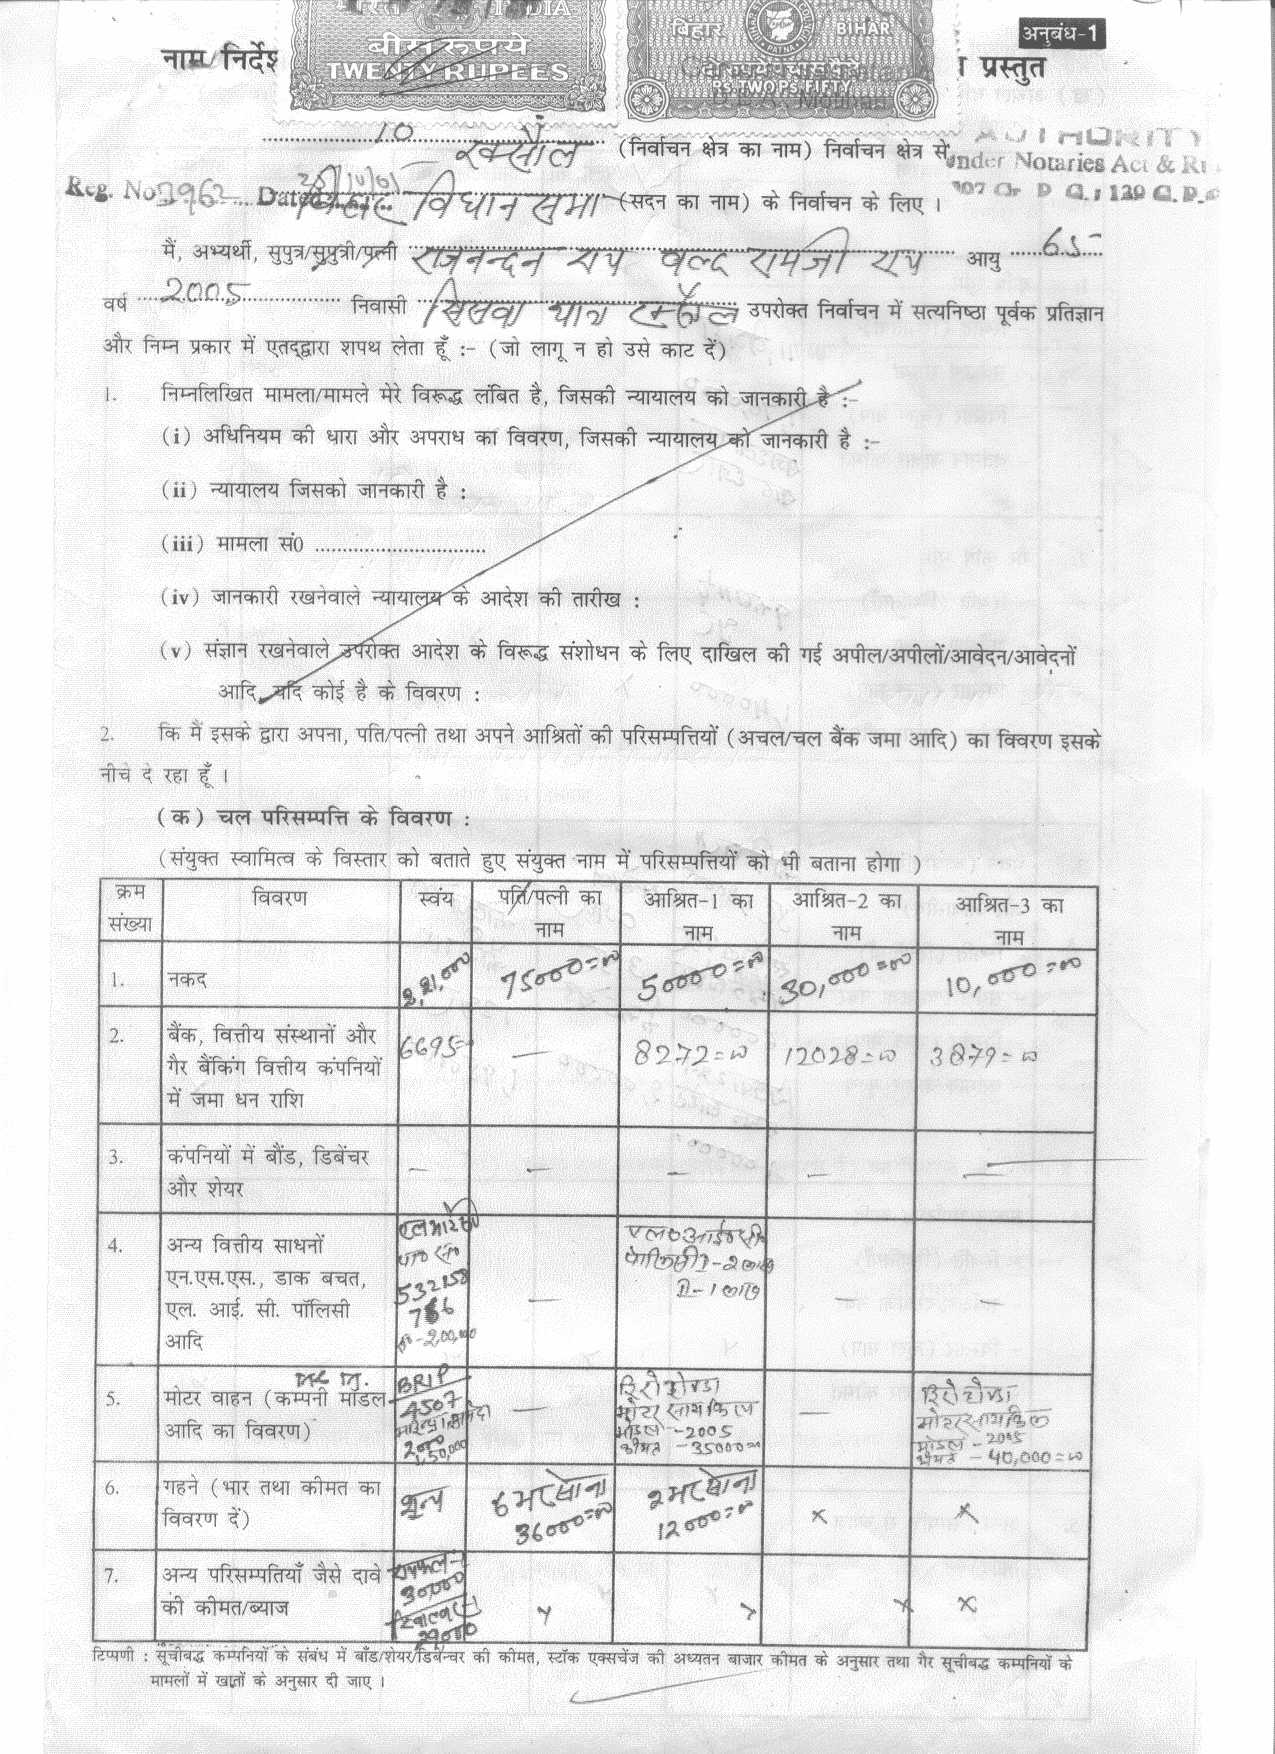 भारत INDIA
बीस रुपये
TWENTY RUPEES
बिहार BIHAR
PATNA
RS. TWO PS. FIFTY
अनुबंध-1
नाम निर्देश
प्रस्तुत
10 रक्सौल (निर्वाचन क्षेत्र का नाम) निर्वाचन क्षेत्र से
AUTHORITY
Under Notaries Act &
Reg. No. 3962 Dated
बिहार विधान सभा (सदन का नाम) के निर्वाचन के लिए ।
मैं, अभ्यर्थी, सुपुत्र/सुपुत्री/पत्नी राजनन्दन राय वल्द रामजी राय आयु 65
वर्ष 2005 निवासी सिसवा उपरोक्त निर्वाचन में सत्यनिष्ठा पूर्वक प्रतिज्ञान
और निम्न प्रकार में एतद्द्वारा शपथ लेता हूँ :- (जो लागू न हो उसे काट दें)
1. निम्नलिखित मामला/मामले मेरे विरूद्ध लंबित है, जिसकी न्यायालय को जानकारी है :-
(i) अधिनियम की धारा और अपराध का विवरण, जिसकी न्यायालय को जानकारी है :-
(ii) न्यायालय जिसको जानकारी है :
(iii) मामला सं0 ...............................
(iv) जानकारी रखनेवाले न्यायालय के आदेश की तारीख :
(v) संज्ञान रखनेवाले उपरोक्त आदेश के विरूद्ध संशोधन के लिए दाखिल की गई अपील/अपीलों/आवेदन/आवेदनों
आदि, यदि कोई है के विवरण :
2. कि मैं इसके द्वारा अपना, पति/पत्नी तथा अपने आश्रितों की परिसम्पत्तियों (अचल/चल बैंक जमा आदि) का विवरण इसके
नीचे दे रहा हूँ ।
(क) चल परिसम्पत्ति के विवरण :
(संयुक्त स्वामित्व के विस्तार को बताते हुए संयुक्त नाम में परिसम्पत्तियों को भी बताना होगा )
क्रम संख्या विवरण स्वंय पति/पत्नी का नाम आश्रित-1 का नाम आश्रित-2 का नाम आश्रित-3 का नाम
1. नकद 2,21,000 75000=00 50000=00 30,000=00 10,000=00
2. बैंक, वित्तीय संस्थानों और 6695 — 8272=00 12028=00 3879=00
गैर बैंकिंग वित्तीय कंपनियों
में जमा धन राशि
3. कंपनियों में बौंड, डिबेंचर — — — — —
और शेयर
4. अन्य वित्तीय साधनों
एन.एस.एस., डाक बचत,
एल. आई. सी. पॉलिसी
आदि
532158
2,00,000
—
एल० आई० सी०
पोलिसी I-2 लाख
II-1 लाख
— —
5. मोटर वाहन (कम्पनी मॉडल
आदि का विवरण)
BRIP
4507
1,50,000
—
हिरो होण्डा
मोटर सायकिल
मोडल -2005
कीमत -35000=00
—
हिरो होण्डा
मोटर सायकिल
मोडल -2005
कीमत -40,000=00
6. गहने (भार तथा कीमत का
विवरण दें)
शून्य
6 भर सोना
36000=00
2 भर सोना
12000=00
x x
7. अन्य परिसम्पतियाँ जैसे दावे
की कीमत/ब्याज
रायफल-1
30,000
x x x x
टिप्पणी : सूचीबद्ध कम्पनियों के संबंध में बाँड/शेयर/डिबेन्चर की कीमत, स्टॉक एक्सचेंज की अध्यतन बाजार कीमत के अनुसार तथा गैर सूचीबद्ध कम्पनियों के
मामलों में खातों के अनुसार दी जाए ।